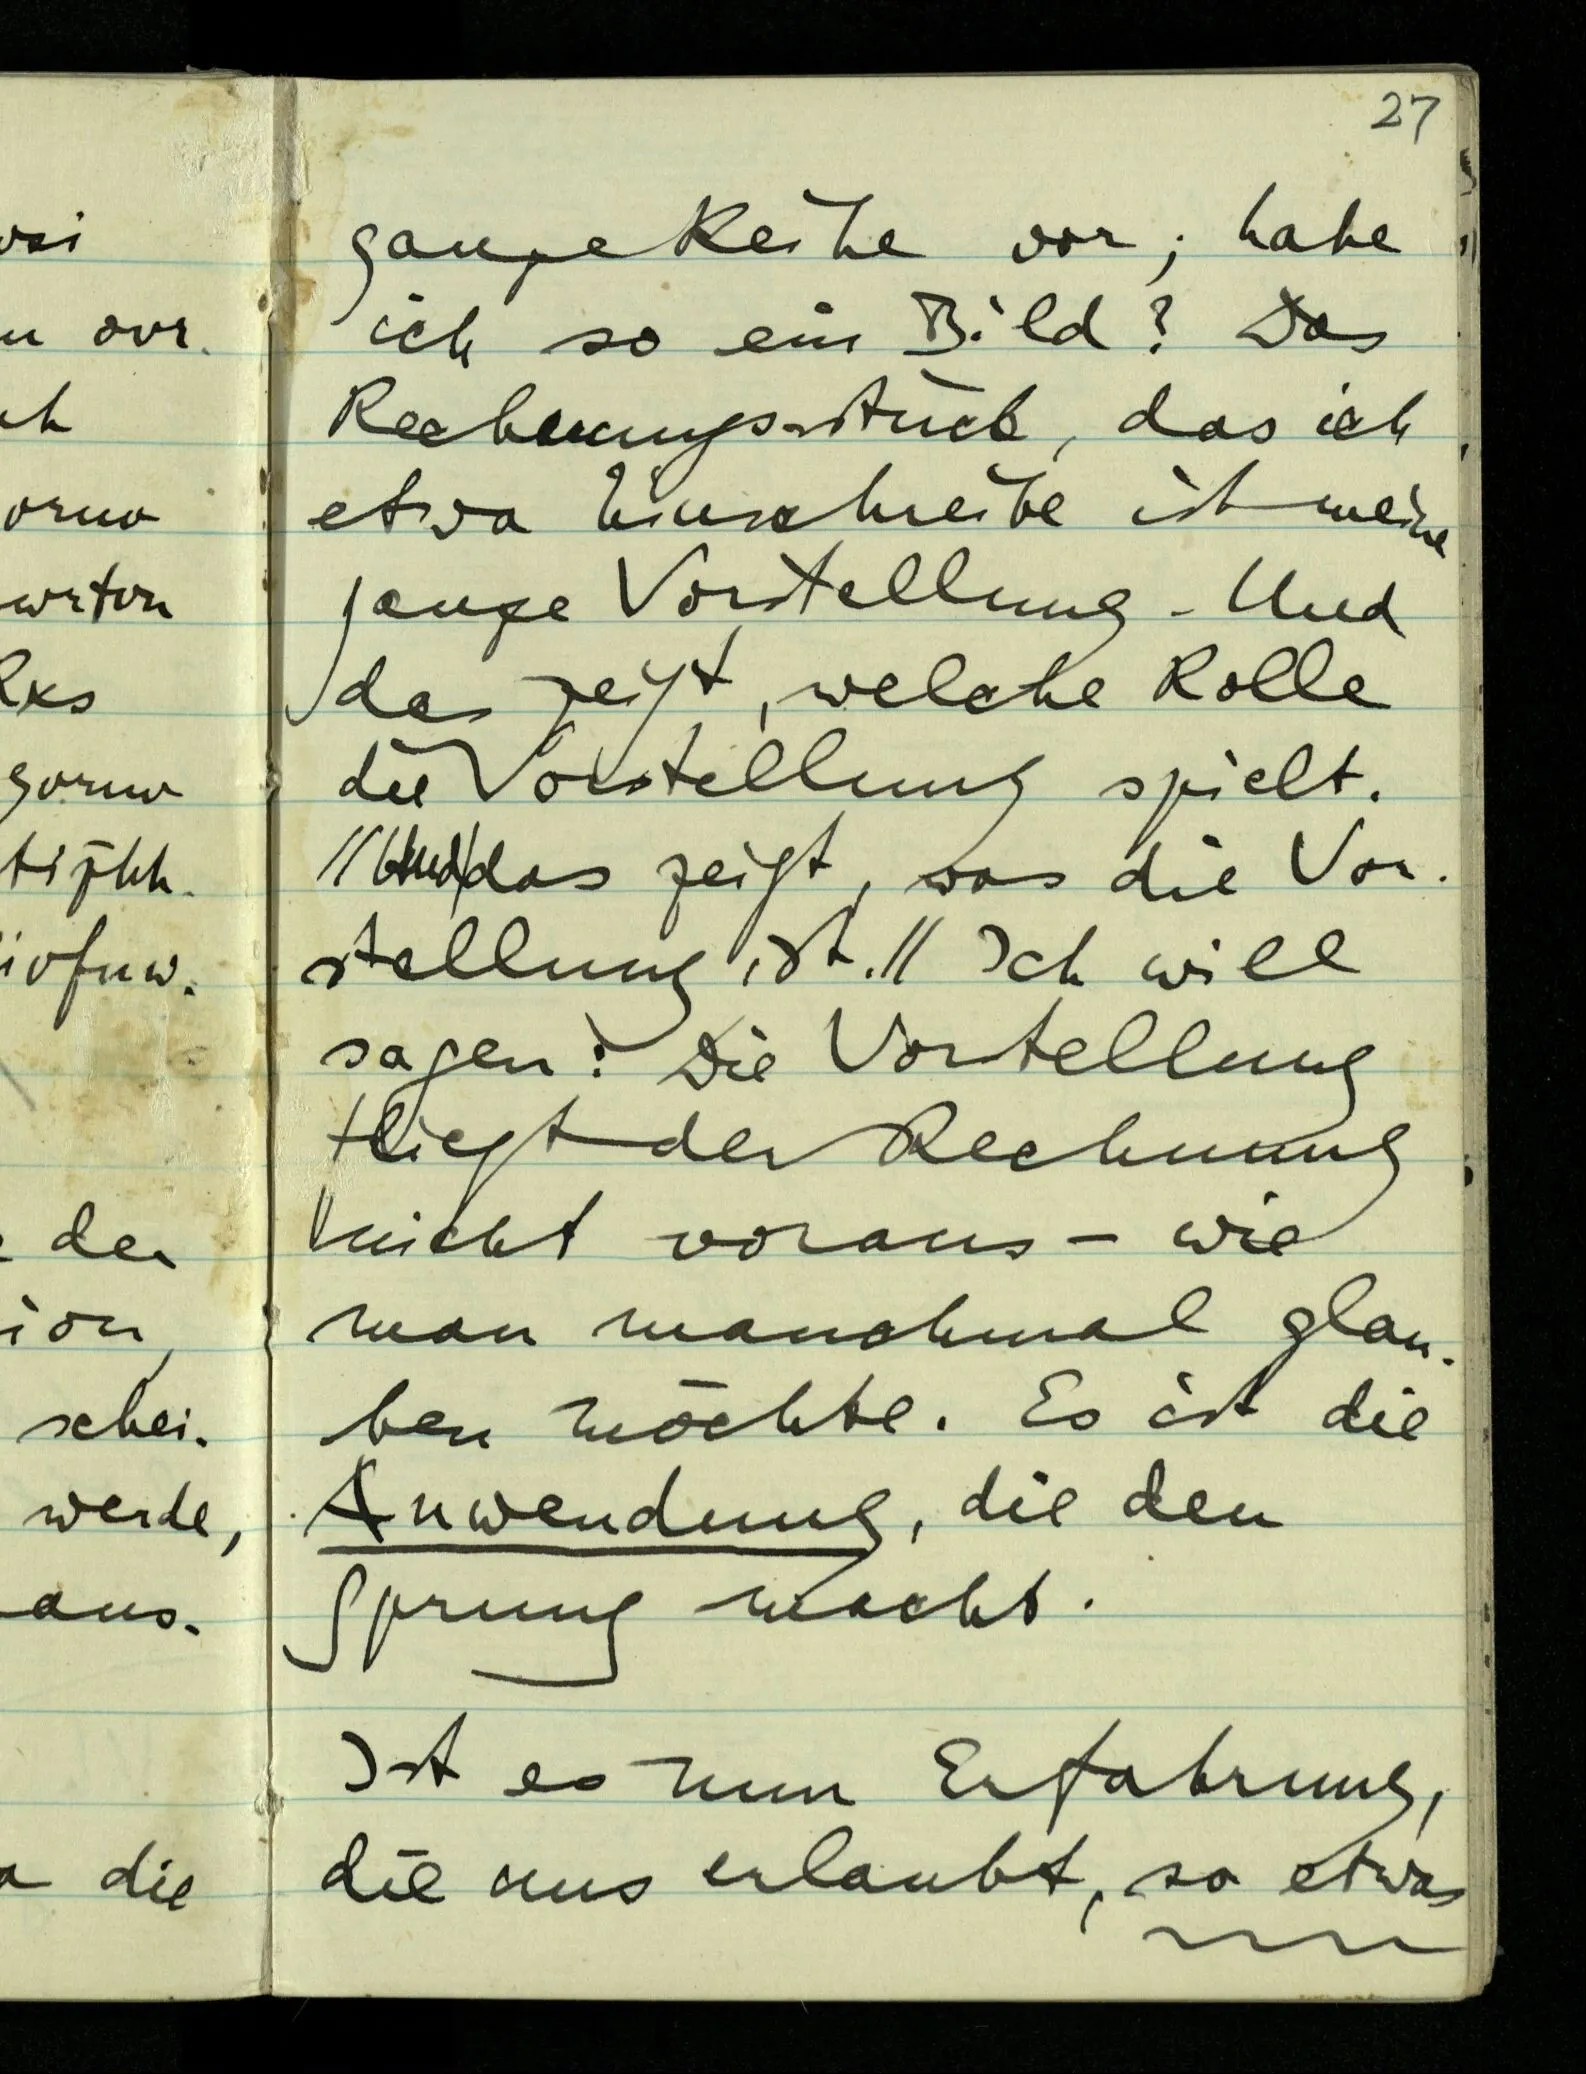 27
ganze Reihe vor; habe
ich so ein Bild? Das
Rechnungsstück, das ich
etwa hinschreibe ist meine
ganze Vorstellung – Und
das zeigt, welche Rolle
die Vorstellung spielt.
//Und das zeigt, was die Vor-
stellung ist.// Ich will
sagen: Die Vorstellung
liegt der Rechnung
nicht voraus – wie
man manchmal glau-
ben möchte. Es ist die
Anwendung, die den
Sprung macht.
Ist es nun Erfahrung,
die uns erlaubt, so etwas
ovr.
der
ion,
schei-
werde,
aus-
die